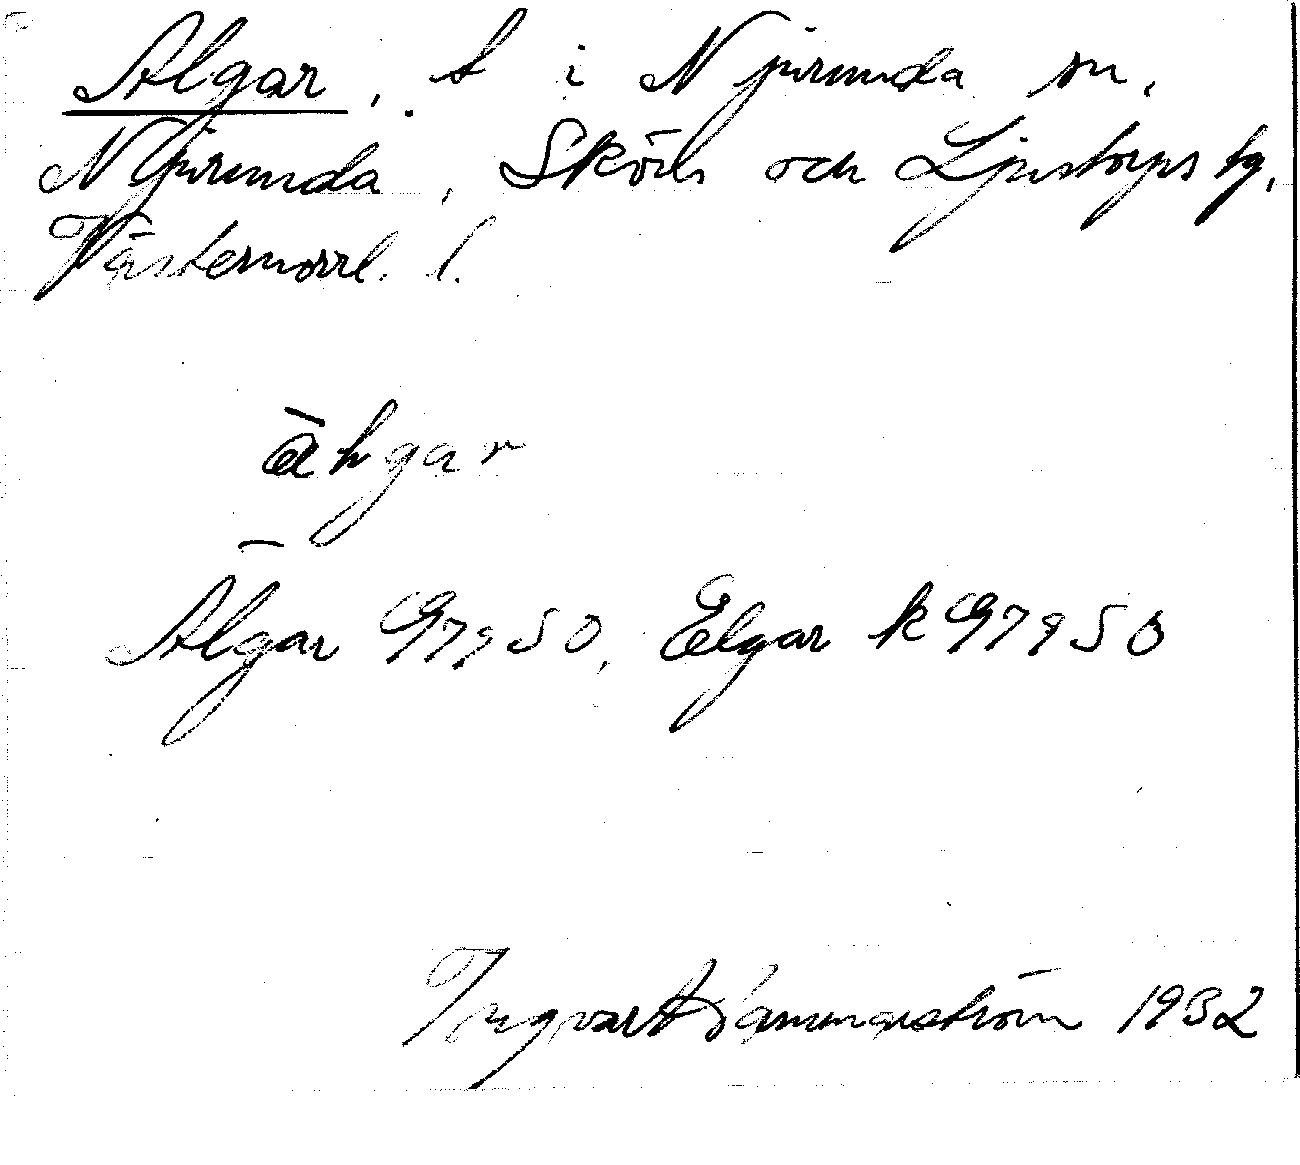 Algar, t i Njurunda sn.
Njurunda, Sköns och Ljustorps tg.
Västernorrl. l.
ähgar
Älgar G7950, Elgar k G7950
Ingvar Hammarström 1932